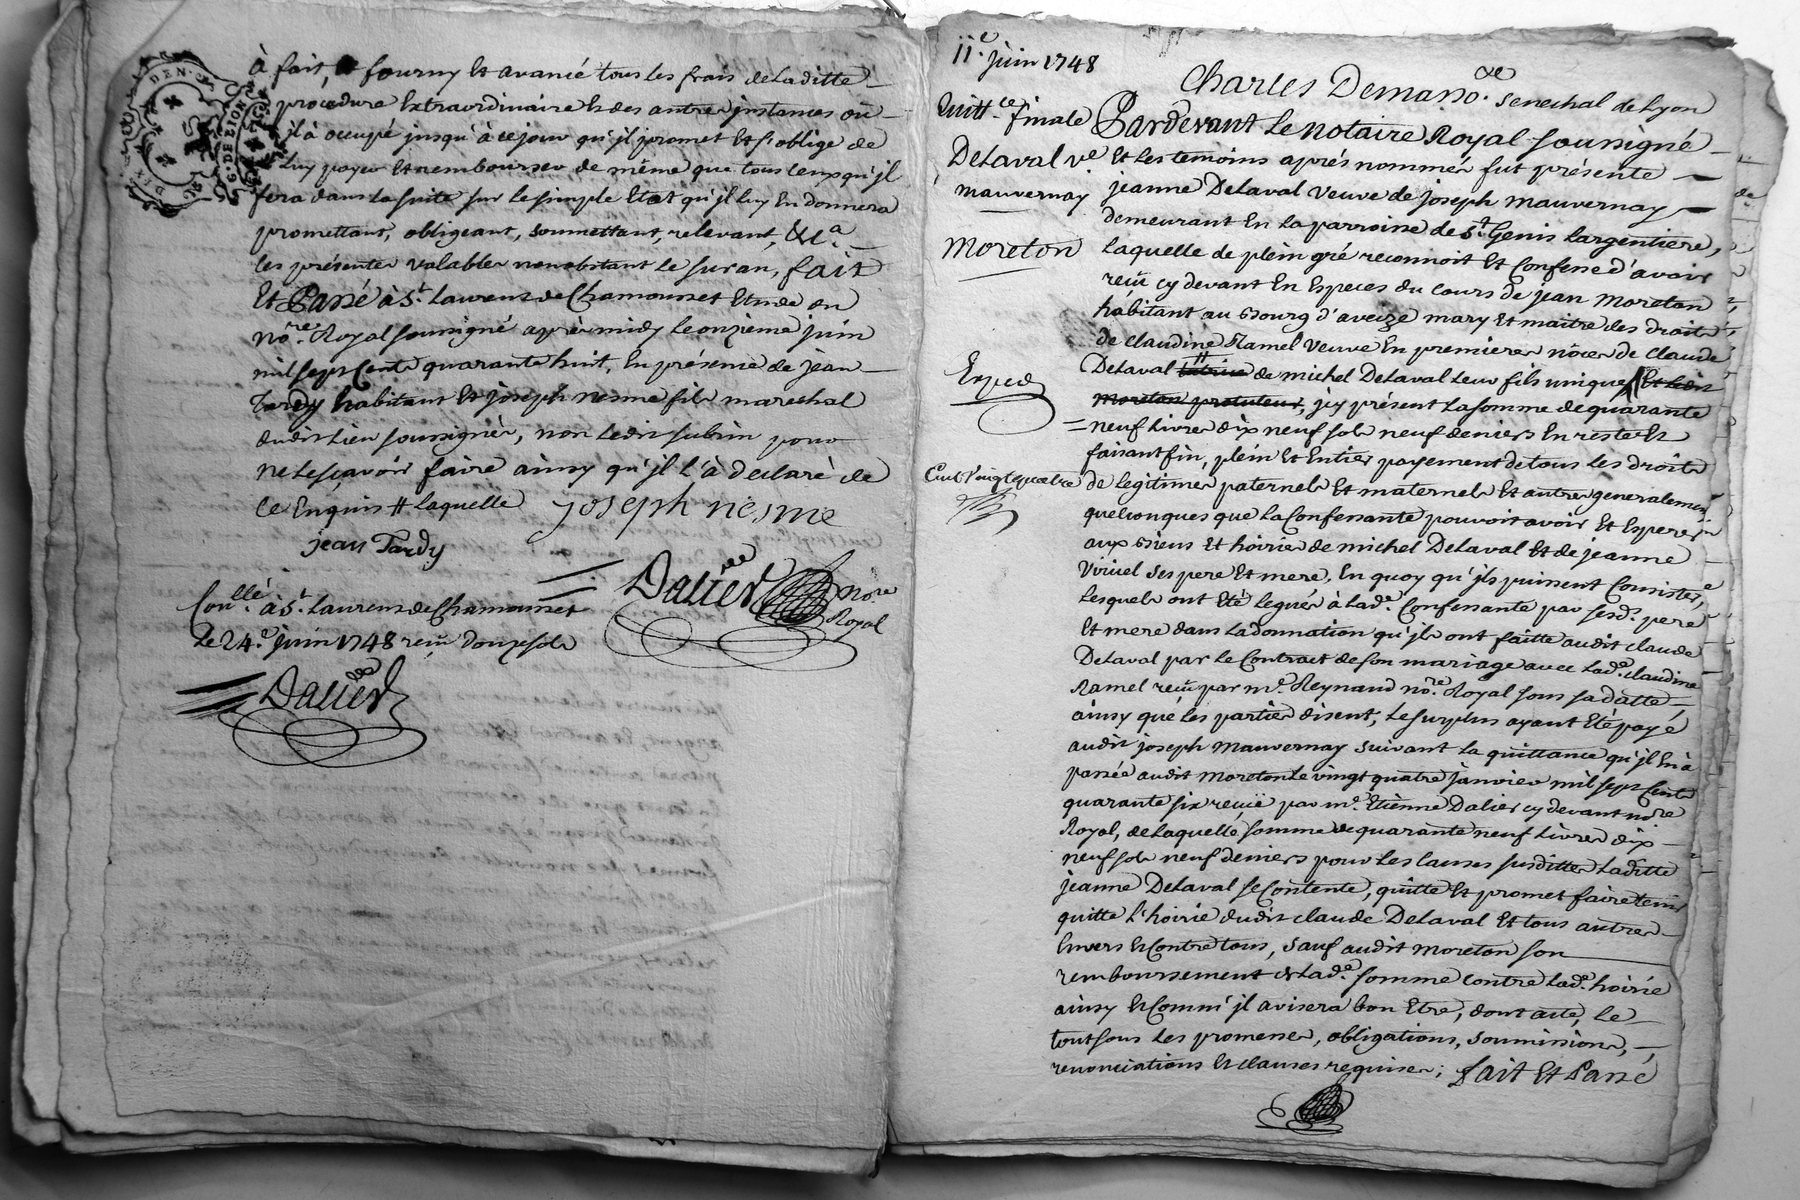 à fait, fourny et avancé tous les frais de laditte
procedure extraordinaire et des autres instances où
il à occupé jusqu'à ce jour qu'jl promet et s'oblige de
luy payer et rembourser de même que tous ceux qu'jl
fera dans la suite sur le simple Etat qu'jl luy en donnera
promettant, obligeant, soumettant, relevant, &c.a
les présentes valables nonobstant le suran, fait
Et Passé à St. Laurent de Chamousset Etude du
no.re Royal soussigné après midy le onzième juin
mil sept cents quarante huit, En présence de jean
Tardy habitant et joseph nesme fils mareschal
dudit lieu soussignés, non ledit subrin pour
ne le sçavoir faire ainsy qu'jl l'à declaré de
ce Enquis # laquelle
joseph nesme
jean Tardy
Dalier no.re
Royal
Con.llé à St. Laurent de Chamousset
Le 24.e juin 1748 reçu douze sols
Dalier
11.e juin 1748
Charles Demasso.
senechal de Lyon
Quitt.ce finale
Delaval v.e
mauvernay
Moreton
Exped
Cent vingt quatre
Pardevant Le Notaire Royal soussigné
Et les temoins après nommés fut présente
jeanne Delaval veuve de joseph mauvernay
demeurant En la parroisse de St. Genis Largentiere,
Laquelle de plein gré reconnoit Et Confesse d'avoir
reçu cy devant En Especes du cours de jean Moreton
habitant au bourg d'aveize mary Et maitre des droits
de claudine Ramel veuve En premieres nôces de Claude
Delaval de michel Delaval leur fils unique Et ledit
moreton protuteur, jcy présent La somme de quarante
neuf livres dix neuf sols neuf deniers En reste Et
faisant fin, plein Et Entier payement de tous les droits
de légitimes paternels Et maternels Et autres generalement
quelconques que la Confessante pouvoit avoir Et Esperer
aux biens Et hoiries de michel Delaval Et de jeanne
Viricel ses pere Et mere, En quoy qu'jls puissent Consister,
lesquels ont Eté legués à lad.e Confessante par sesd. pere
Et mere dans la donnation qu'jls ont faitte audit claude
Delaval par le Contract de son mariage avec lad.e claudine
Ramel reçu par m.e Reynaud no.re Royal sous sa datte
ainsy que les parties disent, le surplus ayant Eté payé
audit joseph Mauvernay suivant la quittance qu'jl En à
passée audit Moreton Le vingt quatre janvier mil sept Cents
quarante six reçuë par m.e Etienne Dalier cy devant no.re
Royal, de laquelle somme de quarante neuf livres dix
neuf sols neuf deniers pour les causes susdittes laditte
jeanne Delaval se Contente, quitte Et promet faire tenir
quitte l'hoirie dudit claude Delaval Et tous autres
Envers Et Contre tous, sauf audit moreton son
remboursement de lad.e somme contre lad.e hoirie
ainsy Et Comm' jl avisera bon Etre, dont acte, Le
tout sous les promesses, obligations, soumissions,
renonciations Et clauses requises; fait Et Passé